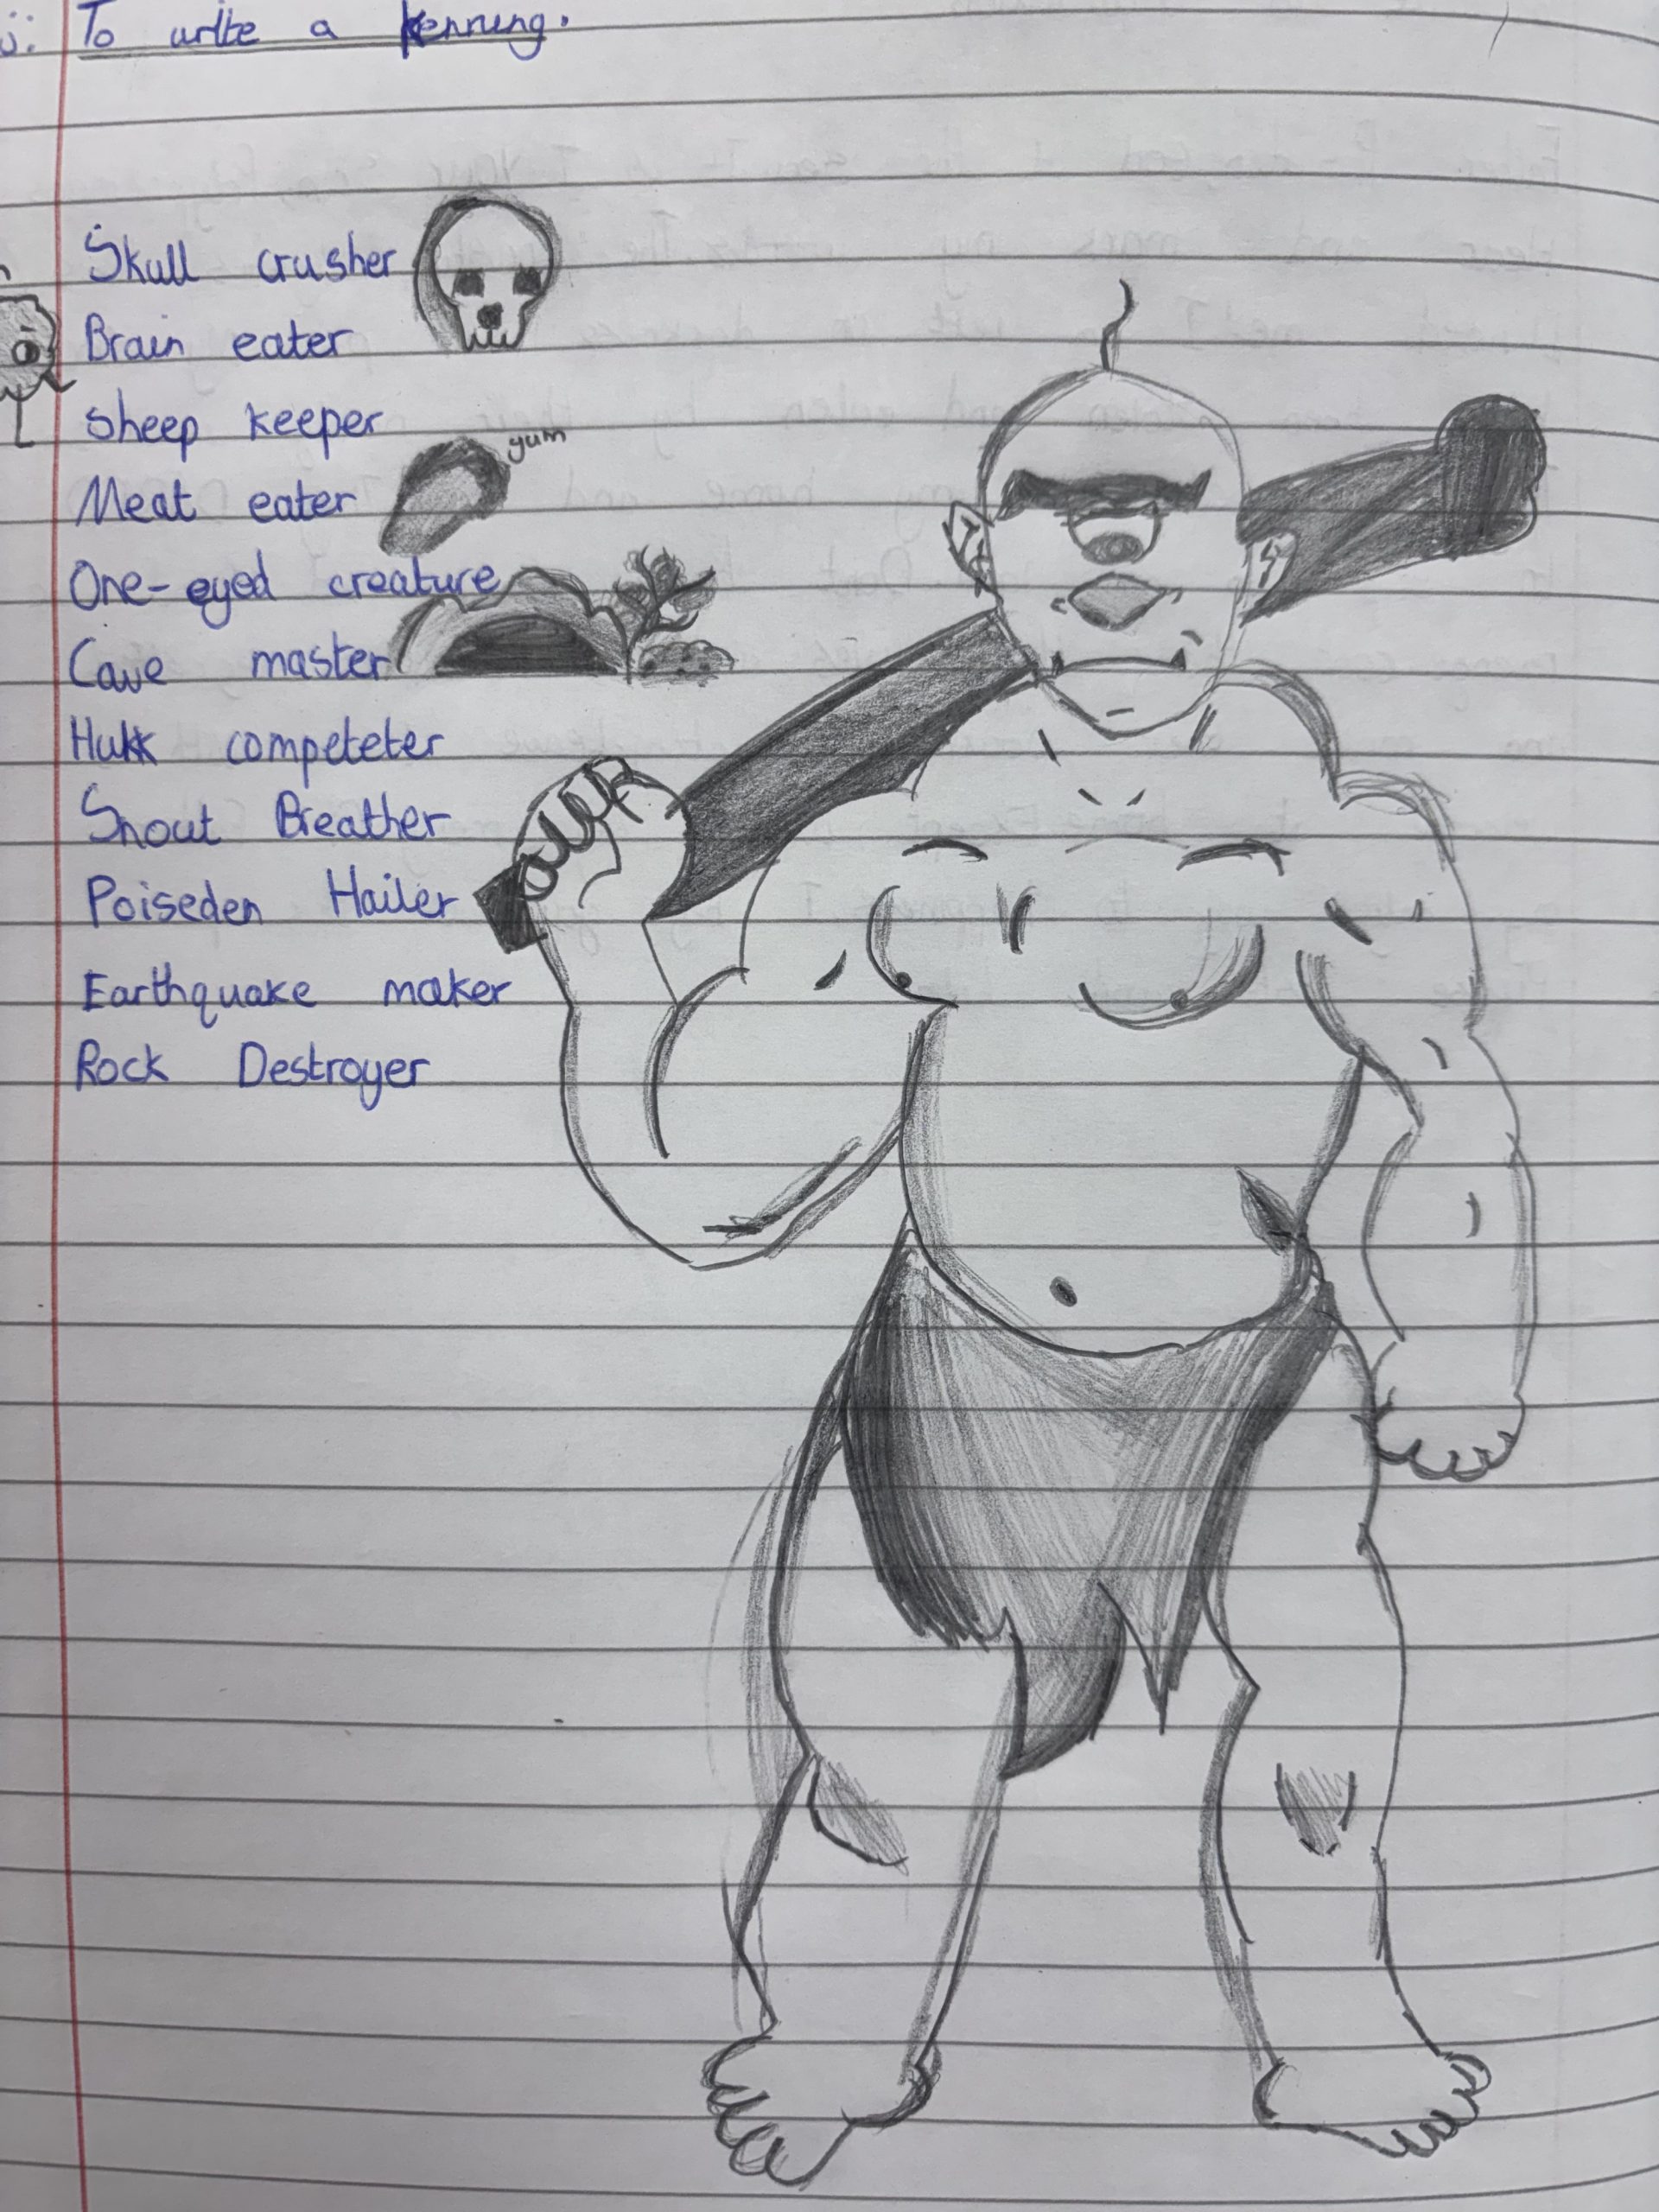 To write a kenning.
Skull crusher
Brain eater
Sheep keeper
yum
Meat eater
One-eyed creature
Cave master
Hulk competeter
Snout Breather
Poiseden Hailer
Earthquake maker
Rock Destroyer